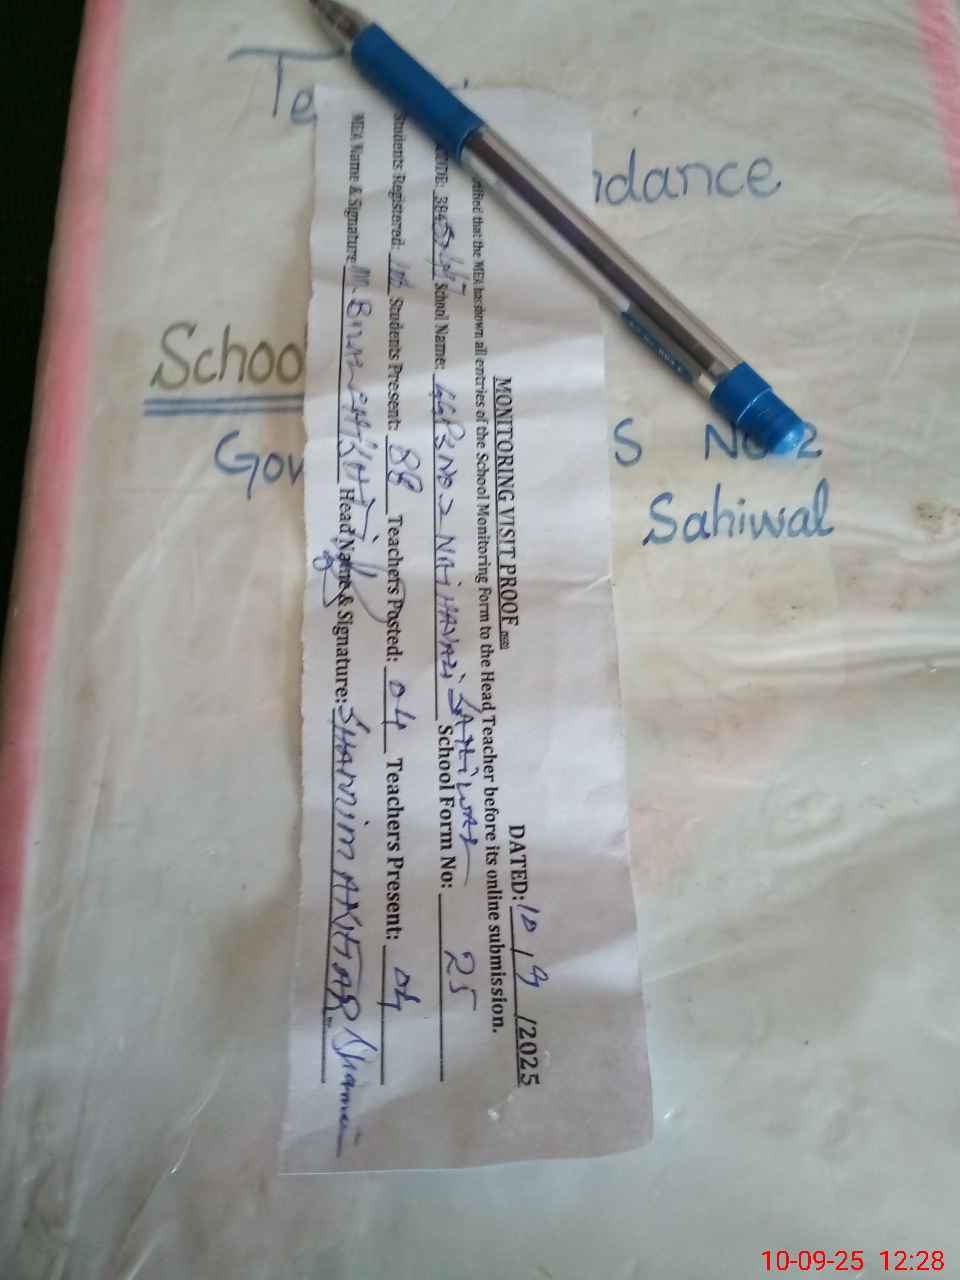 Te
ndance
School
Gov S No 2
Sahiwal
MONITORING VISIT PROOF
DATED: 10 / 9 /2025
that the MEA has shown all entries of the School Monitoring Form to the Head Teacher before its online submission.
School Name: GGPS NO 2 SAHIWAL School Form No: 25
Students Registered: Students Present: 88 Teachers Posted: 04 Teachers Present: 04
MEA Name & Signature M. Head Name & Signature: SHAMIM AKHTAR
10-09-25 12:28